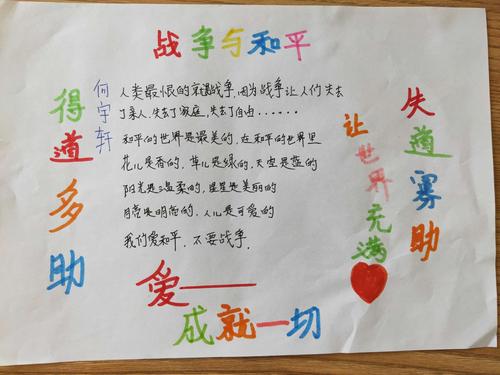 战争与和平
何宇轩
人类最恨的就是战争,因为战争让人们失去
了亲人、失去了家庭,失去了自由······
和平的世界是最美的,在和平的世界里
花儿是香的,草儿是绿的,天空是蓝的
阳光是温柔的,星星是美丽的
月亮是明亮的,人儿是可爱的
我们爱和平,不要战争.
得道多助
失道寡助
让世界充满
爱——
成就一切